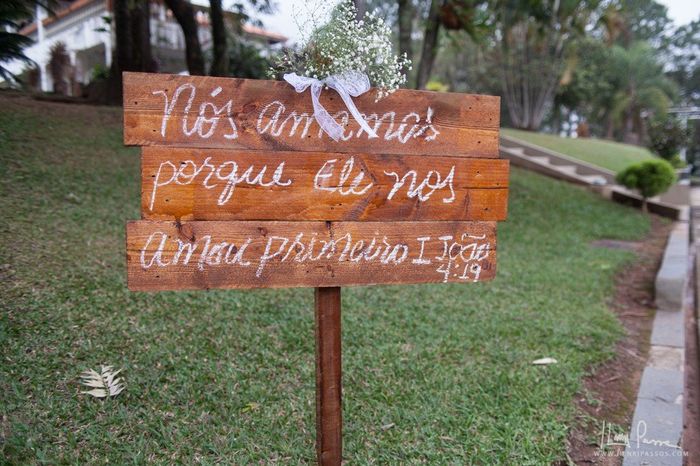 Nós amamos
porque Ele nos
Amou primeiro I João
4:19
Henri Passos
WWW.HENRIPASSOS.COM